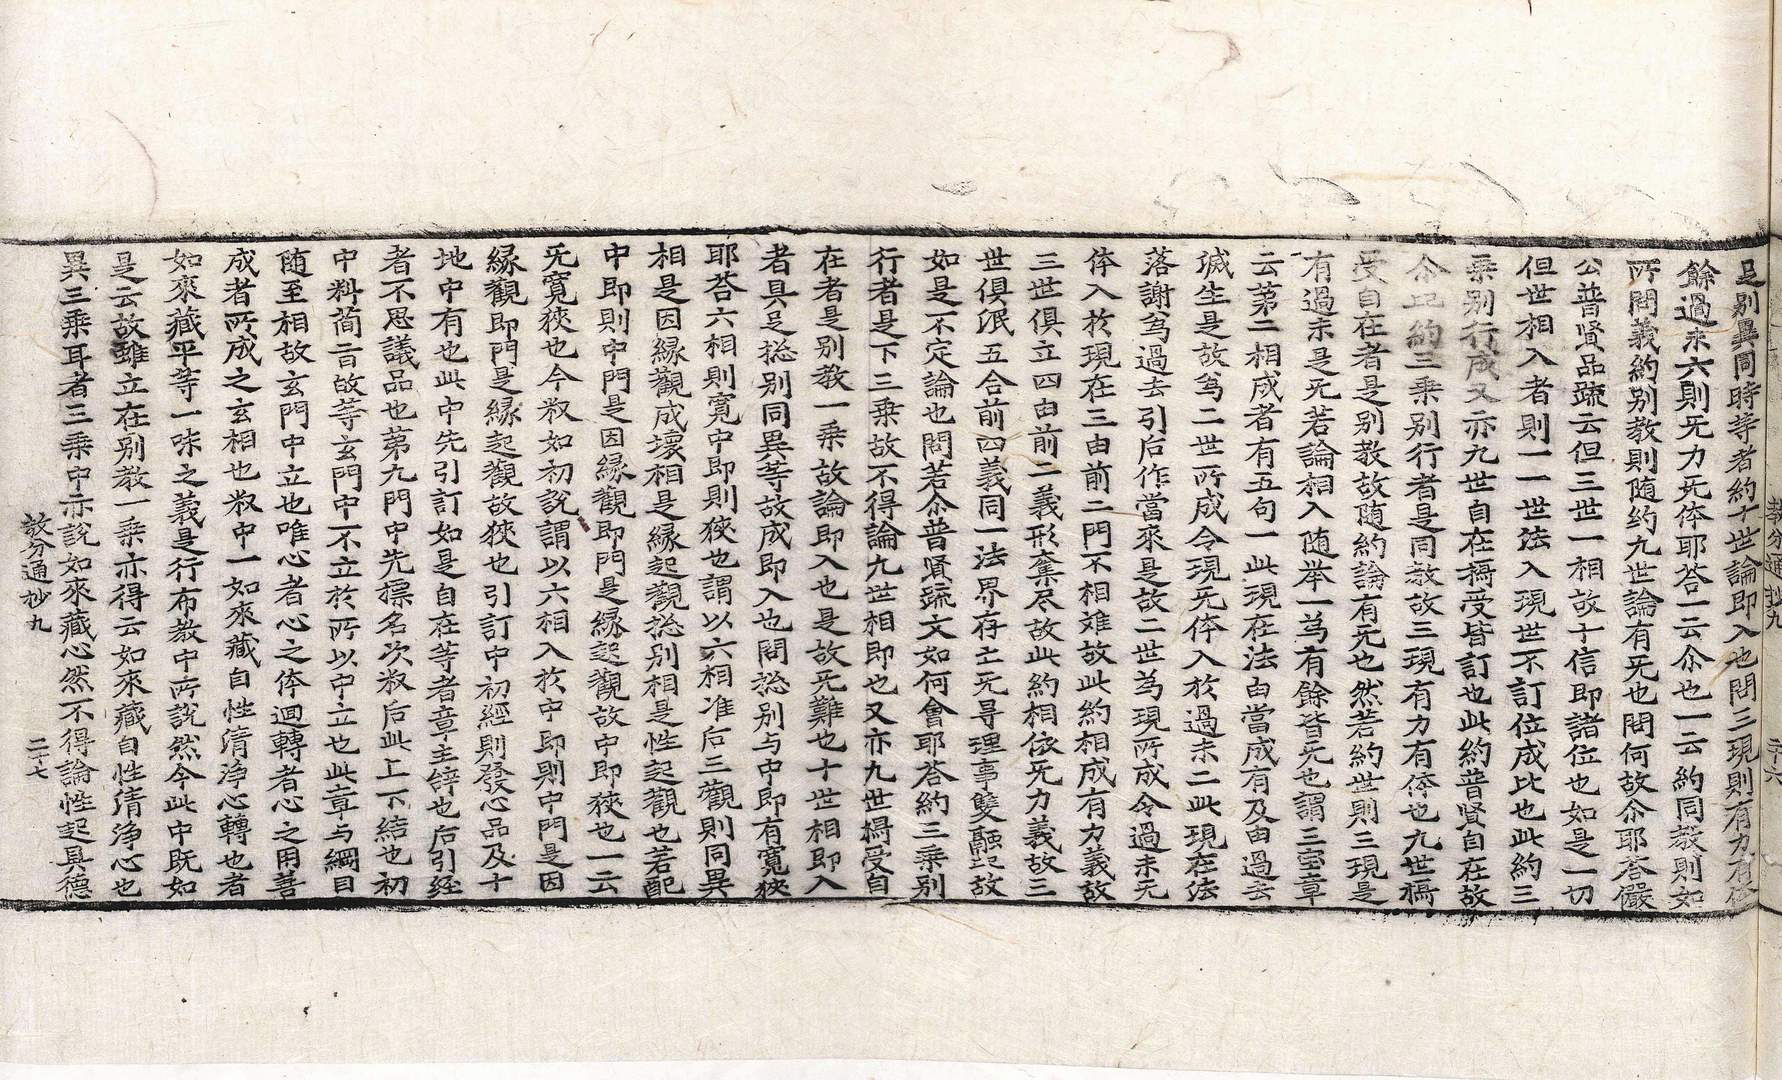 教分通抄九　二十六
足别異同時等者約十世論即入也問三現則有力有体
餘過未六則无力无体耶荅一云尒也一云約同教則如
所問義約别教則随约九世論有无也問何故尒耶荅儼
公普賢品䟽云但三世一相故十信即諸位也如是一切
但世相入者則一一世法入現世不訂位成比也此約三
乗别行成又亦九世自在摂受皆訂也此約普賢自在故
尒此約三乗别行者是同教故三現有力有体也九世摂
受自在者是别教故随約論有无也然若約世則三現是
有過未是无若論相入随举一為有餘皆无也謂三宝章
云苐二相成者有五句一此現在法由當成有及由過去
滅生是故為二世所成令現无体入於過未二此現在法
落謝為過去引后作當來是故二世為現所成令過未无
体入於現在三由前二門不相难故此約相成有力義故
三世俱立四由前二義形奪尽故此約相依无力義故三
世俱泯五合前四義同一法界存亡无㝵理事雙融記故
如是不定論也問若尒普賢䟽文如何會耶荅約三乗别
行者是下三乗故不得論九世相即也又亦九世摂受自
在者是别教一乗故論即入也是故无難也十世相即入
者具足捴别同異等故成即入也問捴别与中即有寬狹
耶荅六相則寬中即則狹也謂以六相准后三觀則同異
相是因縁觀成壊相是縁起觀捴别相是性起觀也若配
中即則中門是因縁觀即門是縁起觀故中即狹也一云
无寬狹也今䄵如初說謂以六相入於中即則中門是因
縁觀即門是縁起觀故狹也引訂中初經則發心品及十
地中有也此中先引訂如是自在等者章主辞也后引経
者不思議品也第九門中先摽名次䄵后此上下結也初
中料简云故等玄門中不立於所以中立也此章与綱目
随至相故玄門中立也唯心者心之体迴轉者心之用善
成者所成之玄相也䄵中一如來藏自性清浄心轉也者
如來藏平等一味之義是行布教中所說然今此中既如
是云故雖立在别教一乗亦得云如來藏自性清浄心也
異三乗耳者三乗中亦說如來藏心然不得論性起具德
教分通抄九　二十七